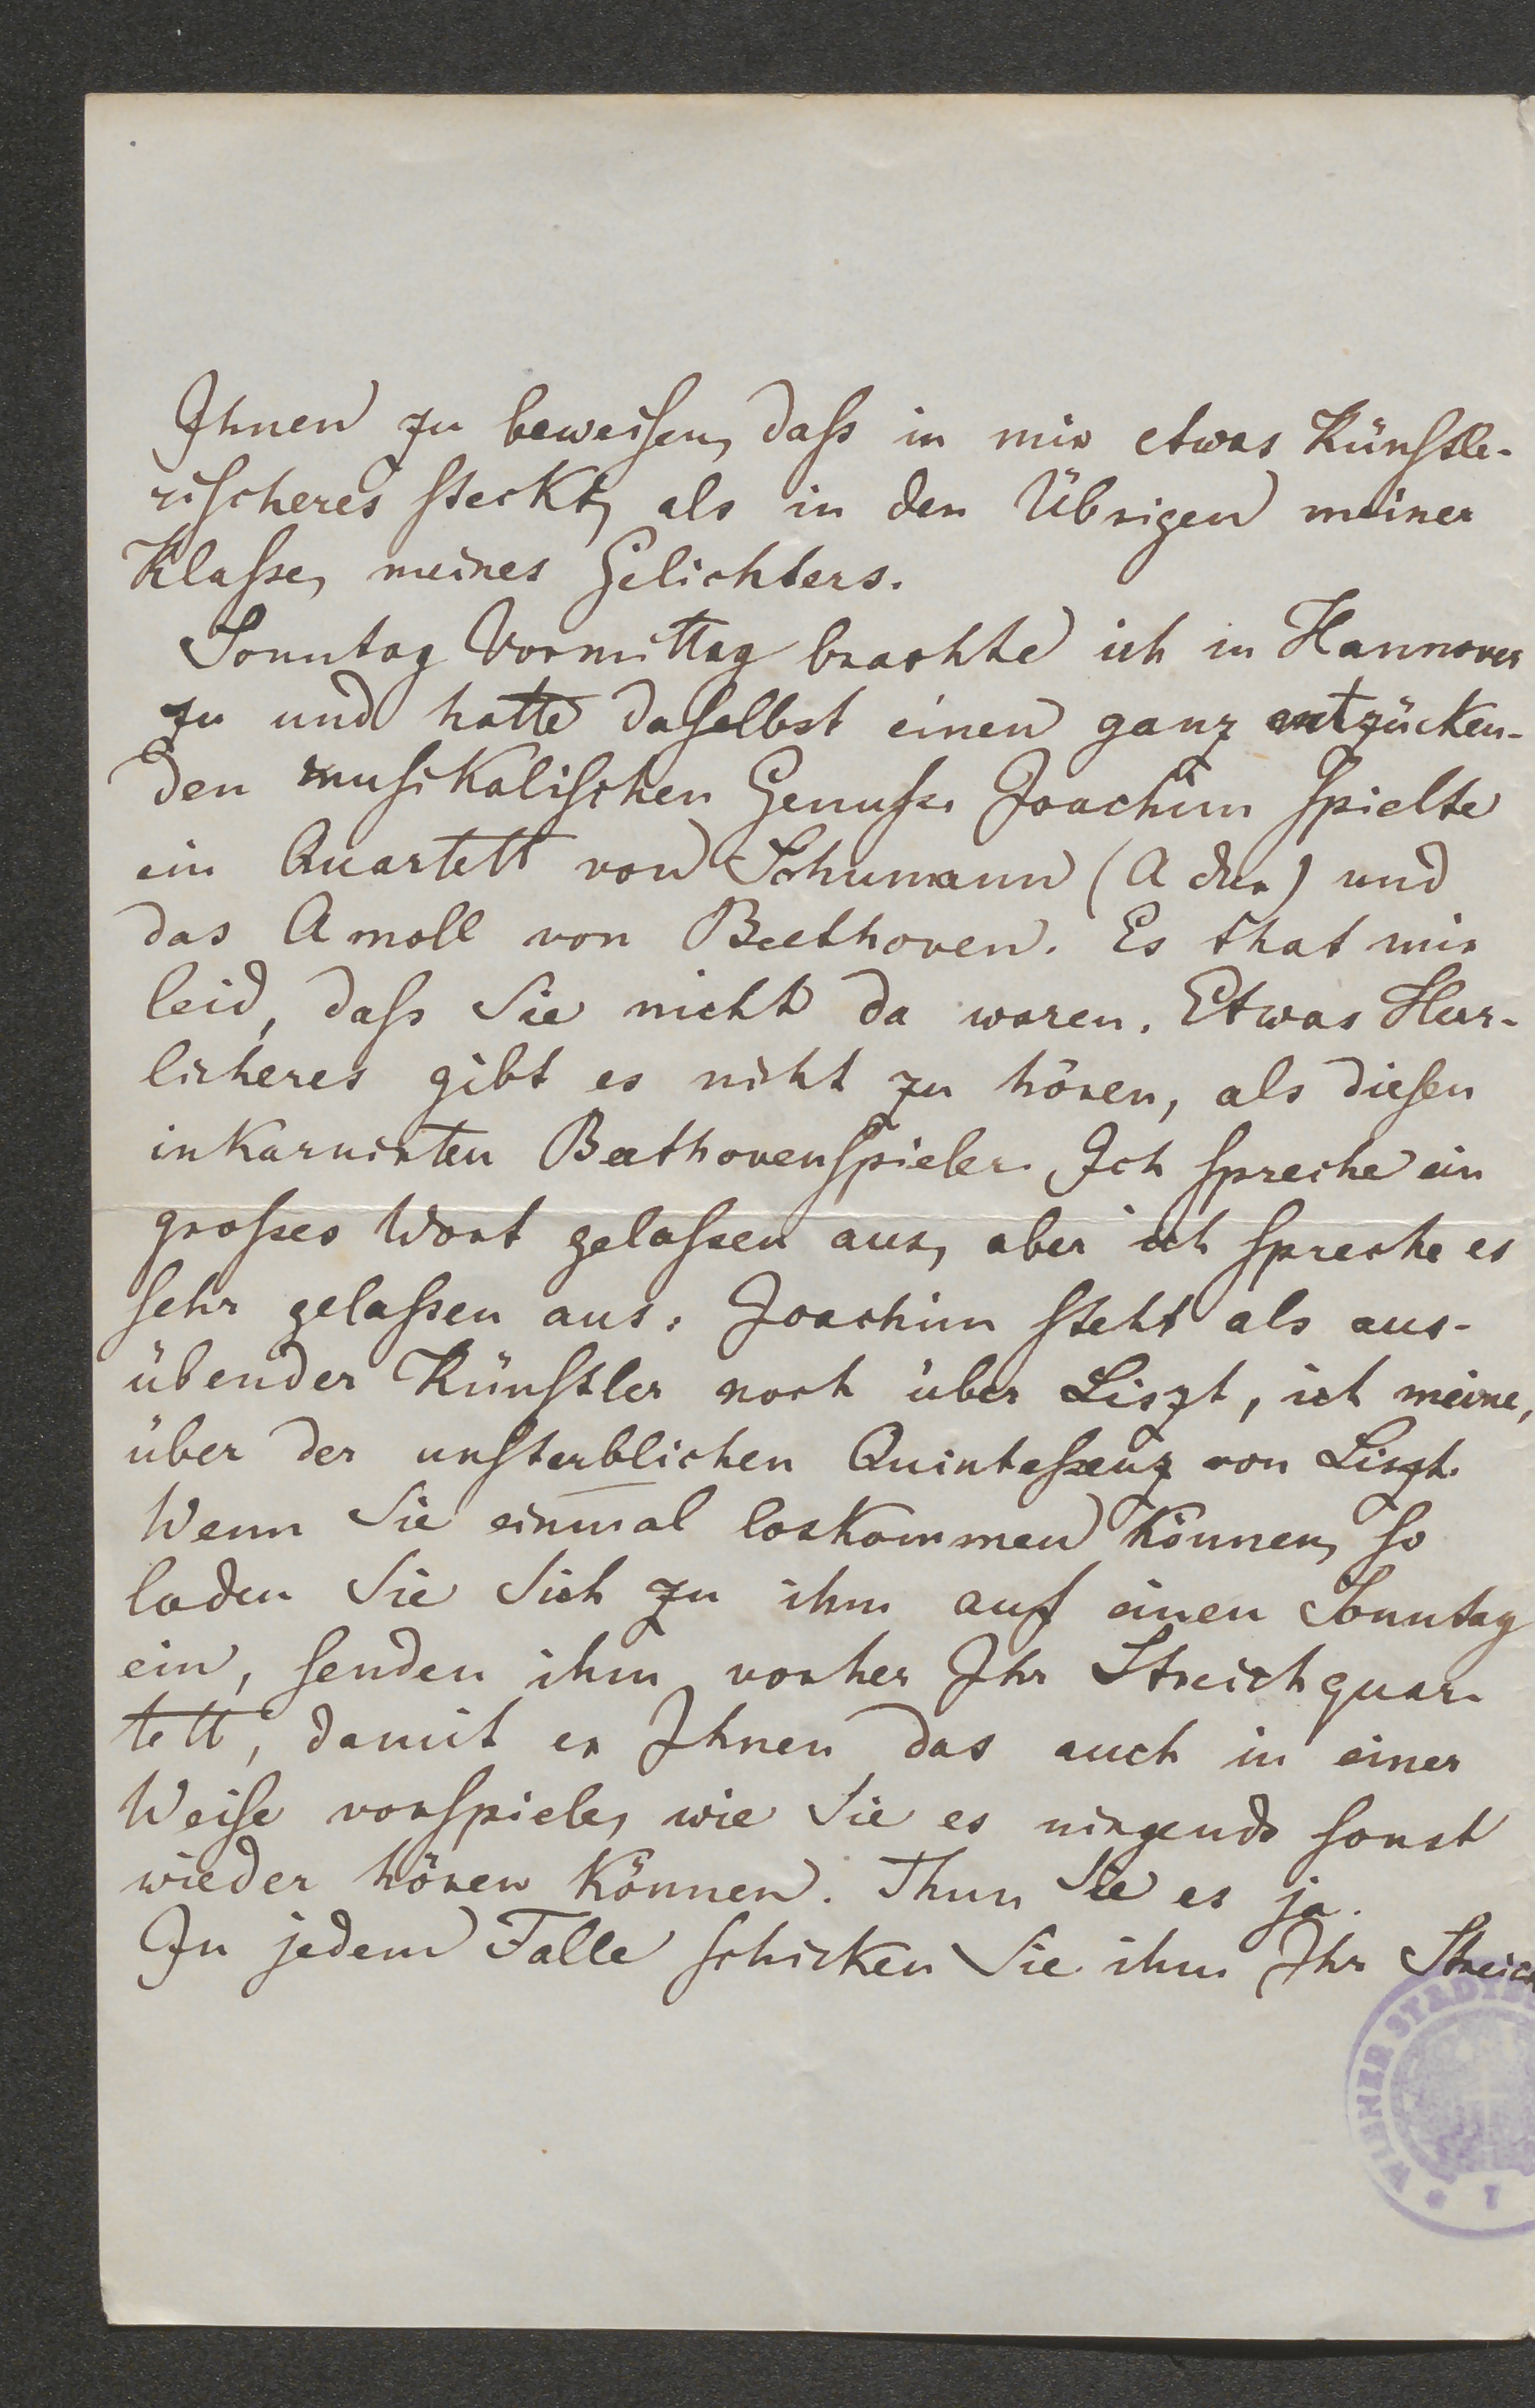 Ihnen zu beweisen, dass in mir etwas Künstle-
rischeres steckt, als in den Übrigen meiner
Klasse, meines Gelichters.
Sonntag Vormittag brachte ich in Hannover
zu und hatte daselbst einen ganz entzücken-
den musikalischen Genuss. Joachim spielte
ein Quartett von Schumann (A dur) und
das A moll von Beethoven. Es that mir
leid, dass Sie nicht da waren. Etwas Herr-
licheres gibt es nicht zu hören, als diesen
inkarnirten Beethovenspieler. Ich spreche ein
grosses Wort gelassen aus, aber ich spreche es
sehr gelassen aus: Joachim steht als aus-
übender Künstler noch über Liszt, ich meine,
über der unsterblichen Quintessenz von Liszt.
Wenn Sie einmal loskommen können, so
laden Sie Sich zu ihm auf einen Sonntag
ein, senden ihm vorher Ihr Streichquar-
tett, damit er Ihnen das auch in einer
Weise vorspiele, wie Sie es nirgends sonst
wieder hören können. Thun Sie es ja.
In jedem Falle schicken Sie ihm Ihr Streich
WIENER STADTB